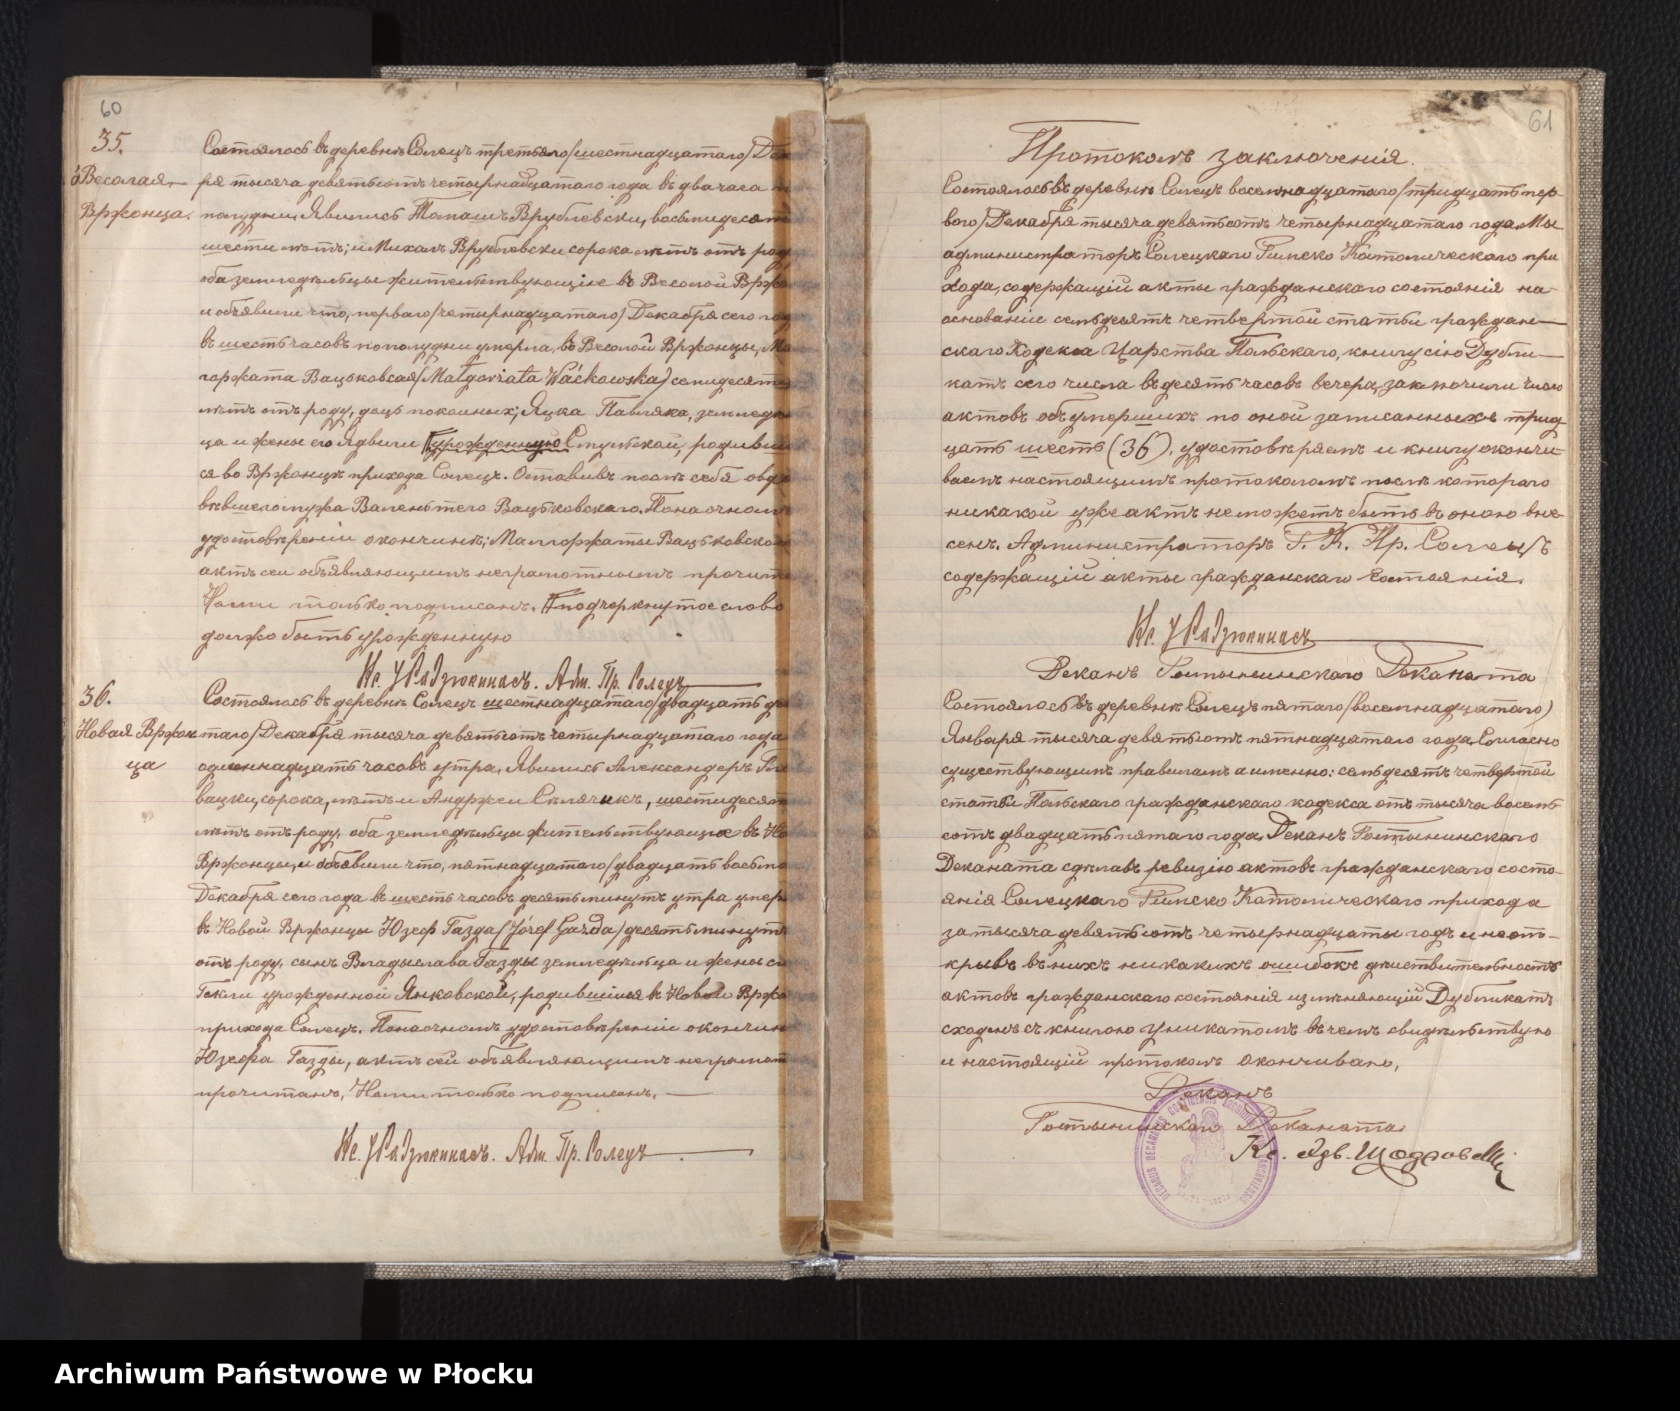 60
35.
Весолая
Вржонца.
Состоялось въ деревнѣ Солецъ третьяго/шестнадцатаго/Дек
ря тысяча девятьсотъ четырнадцатаго года въ два часа п
полудни, Явились Томашъ Врублевски, восьмидесяти
шести лѣтъ; и Михалъ Врублевски сорока лѣтъ отъ род
оба земледѣльцы жительствующіе въ Весолой Вржо
и объявили что, перваго/четырнадцатаго/Декабря сего год
въ шесть часовъ пополудни умерла, въ Весолой Вржонцы, Ма
горжата Вацьковсая/Małgoriata Waćkowska/семидесяти
лѣтъ отъ роду, дочь покойныхъ; Яцка Павляка, земледѣ
ца и жены его Ядвиги урожденную Стульской, родивш
ся во Вржонцѣ прихода Солецъ. Оставивъ послѣ себя овд
вѣвшего мужа Валентего Вацьковскаго. По наочномъ
удостовѣреніи окончинѣ; Малгоржаты Вацьковской
актъ сей объявляющимъ неграмотнымъ прочит
Нами только подписанъ. подчеркнутое слово
должо быть урожденную
Кс. У Радзюкинасъ. Адм. Пр. Солецъ
36.
Новая Вржон
ца
Состоялось въ деревнѣ Солецъ шестнадцатаго/двадцать де
таго/Декабря тысяча девятьсотъ четырнадцатаго года
одиннадцать часовъ утра, Явились Александеръ Гла
вацки, сорока, лѣтъ и Анджей Слячикъ, шестидесят
лѣтъ отъ роду, оба земледѣльцы жительствующіе въ Но
Вржонцы, и объявили что, пятнадцатаго/двадцать восьмо
Декабря сего года въ шесть часовъ десять минутъ утра умер
въ Новой Вржонцы Юзеф Газда/Józef Gazda/десять минутъ
отъ роду, сынъ Владыслава Газды земледѣльца и жены ег
Текли урожденной Янковской, родившійся въ Новой Вржо
прихода Солецъ. По наочномъ удостовѣреніи окончин
Юзефа Газды, актъ сей объявляющимъ неграмот
прочитанъ, Нами только подписанъ.
Кс. У Радзюкинасъ. Адм. Пр. Солецъ
61
Протоколъ заключенія.
Состоялось въ деревнѣ Солецъ восемнадцатаго/тридцать пер-
вого/Декабря тысяча девятьсотъ четырнадцатаго года. Мы
администраторъ Солецкаго Римско Католическаго при
хода, содержащій акты гражданскаго состоянія на-
основаніи семьдесятъ четвертой статьи граждан-
скаго Кодекса Царства Польскаго, книгу сію Дубли-
катъ сего числа въ десять часовъ вечера, заключили число
актовъ объ умершихъ по оной записанныхъ трид
цать шесть (36), удостовѣряемъ и книгу окончи-
ваемъ настоящимъ протоколомъ послѣ котораго
никакой уже актъ не можетъ быть въ оною вне-
сенъ. Администраторъ Г. К. Пр. Солецъ
содержащій акты гражданскаго состоянія.
Кс. У Радзюкинасъ
Деканъ Гостынинскаго Деканата
Состоялось въ деревнѣ Солецъ пятаго/восемнадцатаго/
Января тысяча девятьсотъ пятнадцатаго года. Согласно
существующимъ правиламъ а именно: семьдесятъ четвертой
статьи Польскаго гражданскаго кодекса отъ тысяча восемь
сотъ двадцать пятаго года. Деканъ Гостынинскаго
Деканата сдѣлавъ ревизію актовъ гражданскаго состо-
янія Солецкаго Римско Католическаго прихода
за тысяча девятьсотъ четырнадцаты годъ и не от-
крывъ въ нихъ никакихъ ошибокъ дѣйствительность
актовъ гражданскаго состоянія измѣняющій Дубликатъ
сходенъ съ книгою уникатомъ въ чемъ свидѣтельствую
и настоящій протоколъ окончиваю.
Деканъ
Гостынинскаго Деканата
Кс. Адв. Щодровски
DECANUS DECANATUS GOSTINENSIS
Archiwum Państwowe w Płocku